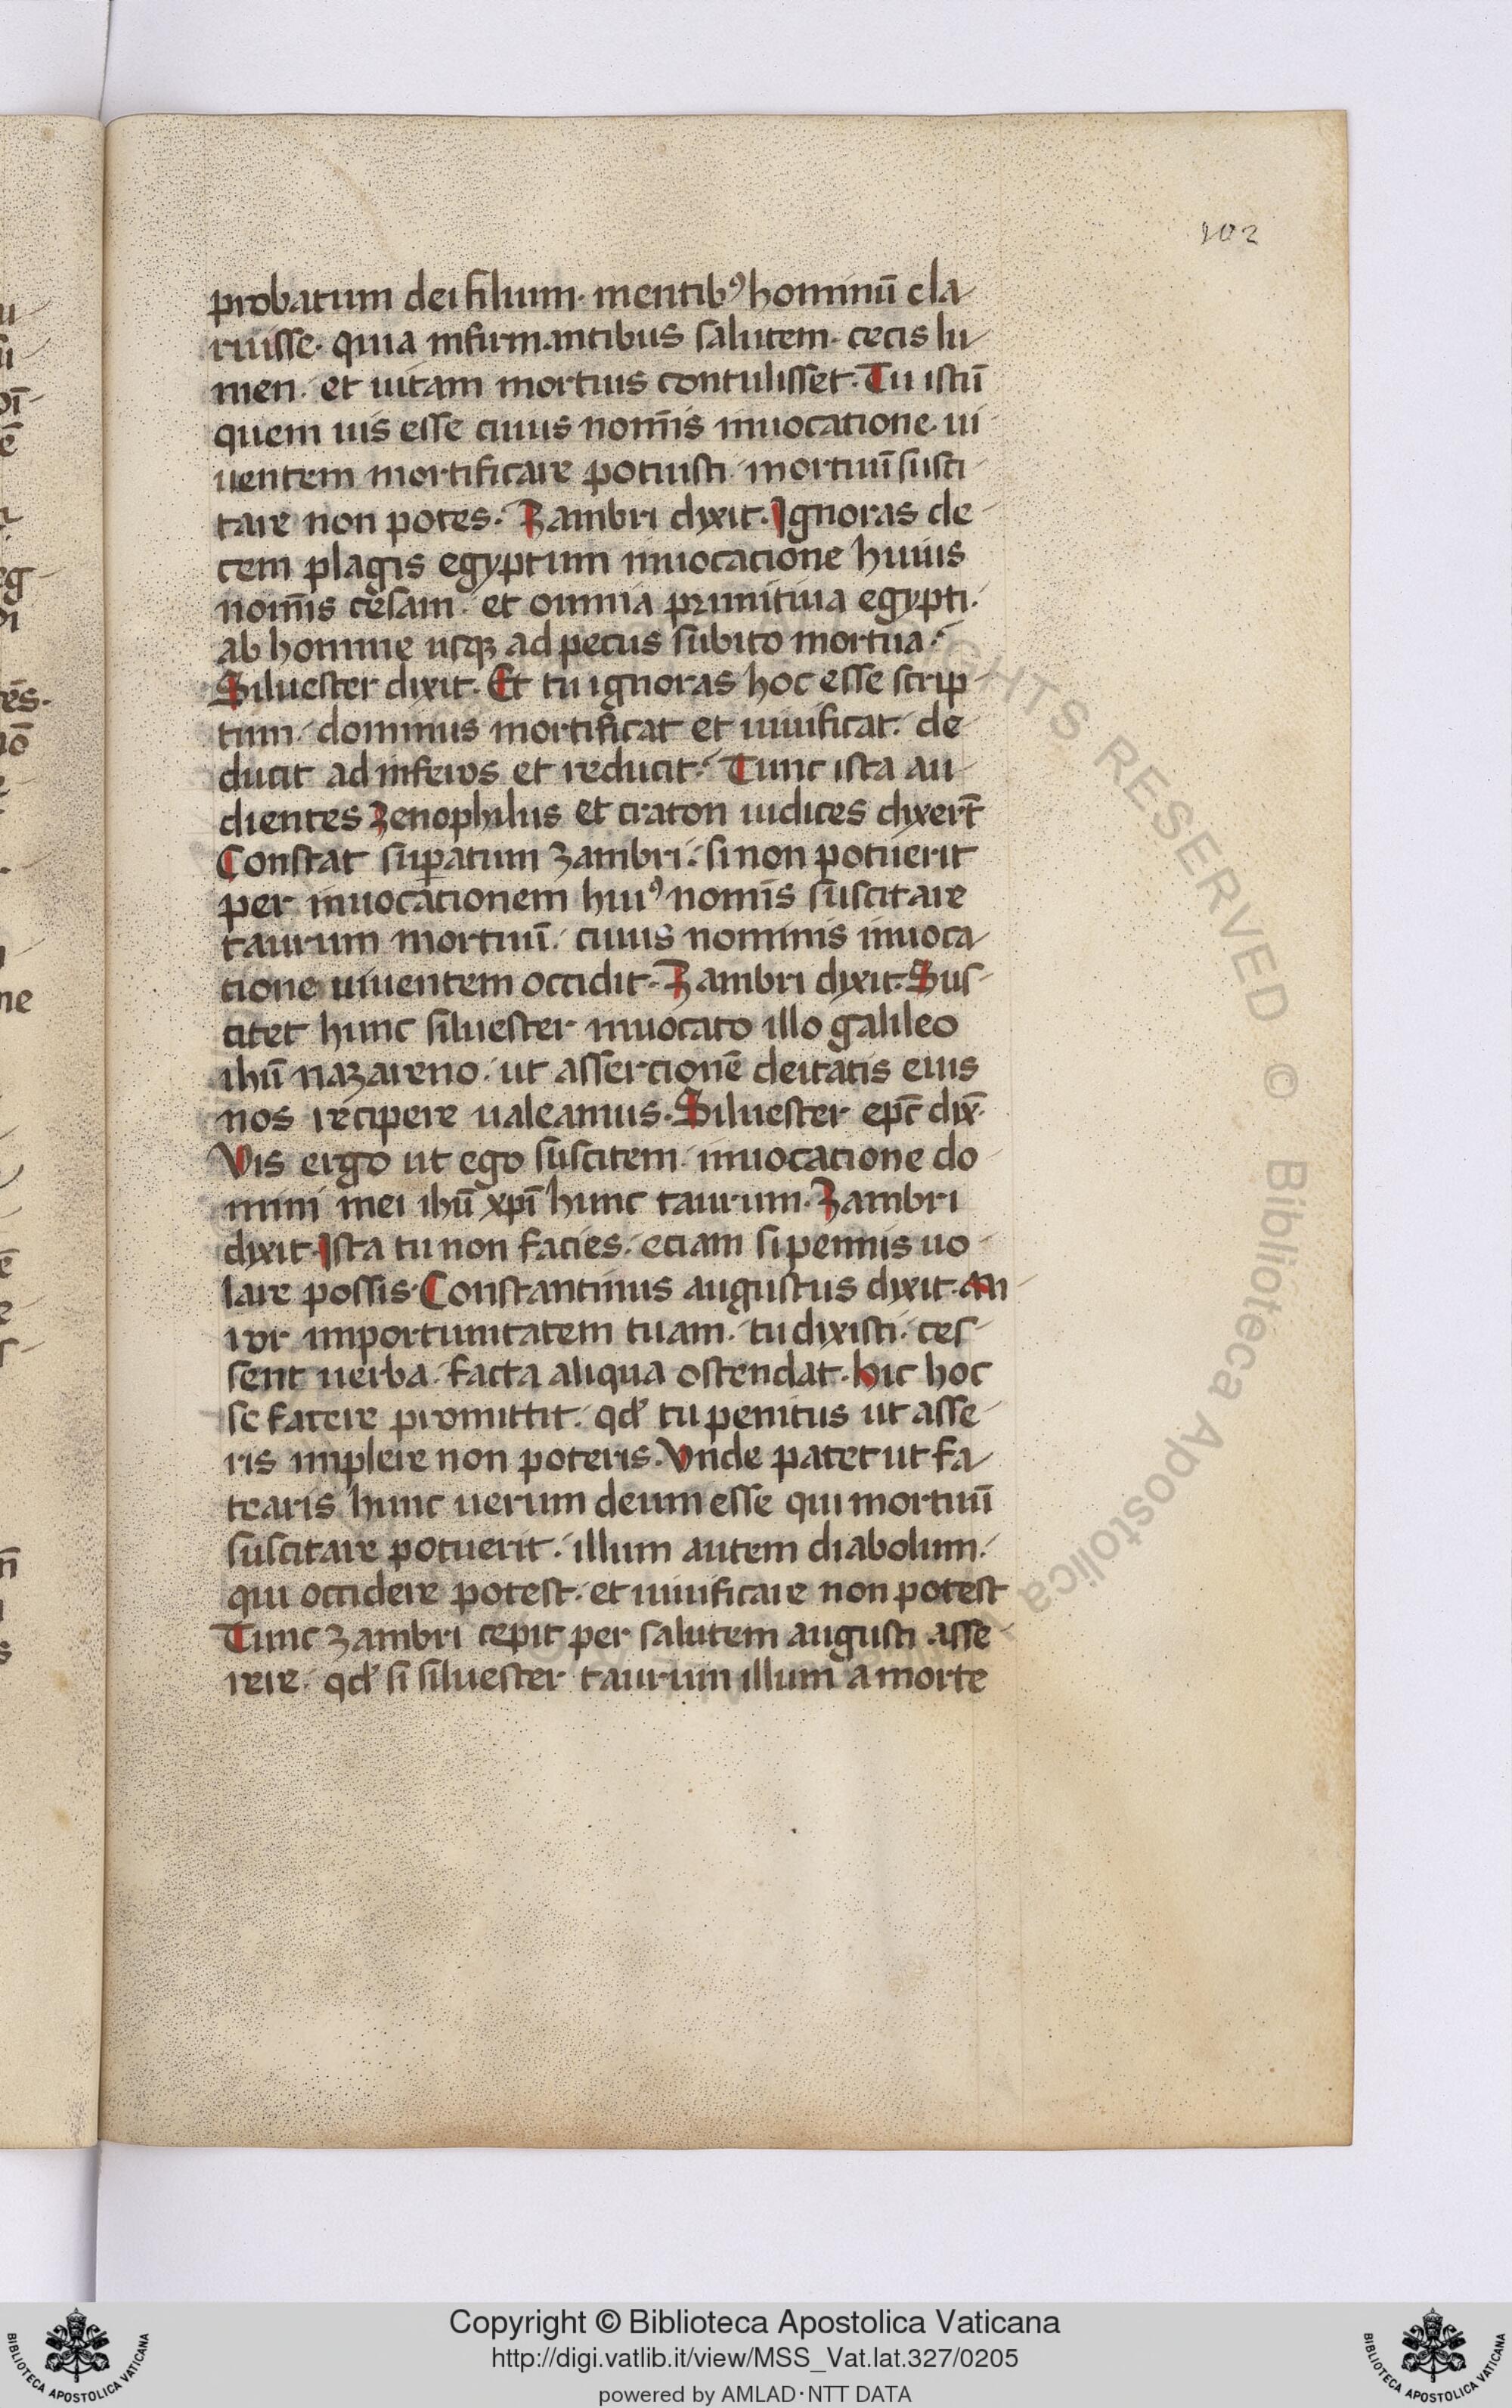 102
probatum dei filium. mentibꝰ hominū cla
ruisse. quia infirmantibus salutem. cecis lu
men. et uitam mortuis contulisset. Tu istū
quem uis esse cuius nom̄is inuocatione. ui
uentem mortificare potuisti. mortuū susci
tare non potes. Zambri dyxit. Ignoras de
cem plagis egyptum inuocacione huius
nom̄is cesam. et omnia primitiua egypti.
ab homine usqꝫ ad pecus subito mortua.
Siluester dixit. Et tu ignoras hoc esse scrip
tum. dominus mortificat et uiuificat. de
ducit ad inferos et reducit. Tunc ista au
dientes zenophilus et craton iudices dyxert̄
Constat suꝑatum zambri. si non potuerit
per inuocacionem huiꝰ nomīs suscitare
taurum mortuū. cuius nominis inuoca
cione uiuentem occidit. Zambri dyxit. Sus
citet hunc siluester inuocato illo galileo
ihū nazareno. ut assercionē deitatis eius
nos recipere ualeamus. Siluester epc̄ dix̄.
Vis ergo ut ego suscitem inuocacione do
mini mei ihū xpī hunc taurum. Zambri
dyxit. Ista tu non facies. eciam si pennis uo
lare possis. Constantinus augustus dyxit. Mi
ror importunitatem tuam. tu dixisti. ces
sent uerba. facta aliqua ostendat. hic hoc
se facere promittit. qd̓ tu penitus ut asse
ris implere non poteris. Vnde patet ut fa
tearis hunc uerum deum esse qui mortuū
suscitare potuerit. illum autem diabolum.
qui occidere potest. et uiuificare non potest
Tunc zambri cepit per salutem augusti asse
rere. qd̓ si siluester taurum illum a morte
RIGHTS RESERVED © Biblioteca Apostolica
Copyright © Biblioteca Apostolica Vaticana
http://digi.vatlib.it/view/MSS_Vat.lat.327/0205
powered by AMLAD·NTT DATA
BIBLIOTECA APOSTOLICA VATICANA
BIBLIOTECA APOSTOLICA VATICANA